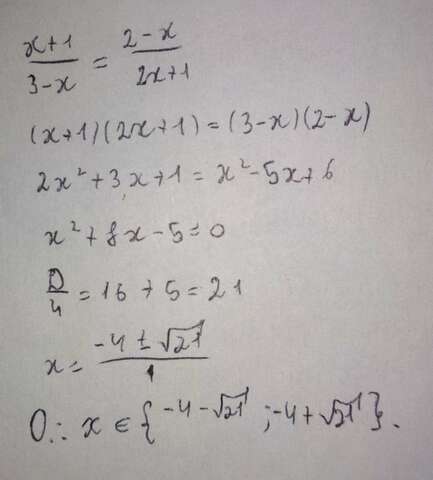 x+1/3-x = 2-x/2x+1
(x+1)(2x+1)=(3-x)(2-x)
2x²+3x+1=x²-5x+6
x²+8x-5=0
D/4=16+5=21
x=-4±√21/1
O∴ x∈{-4-√21;-4+√21}.